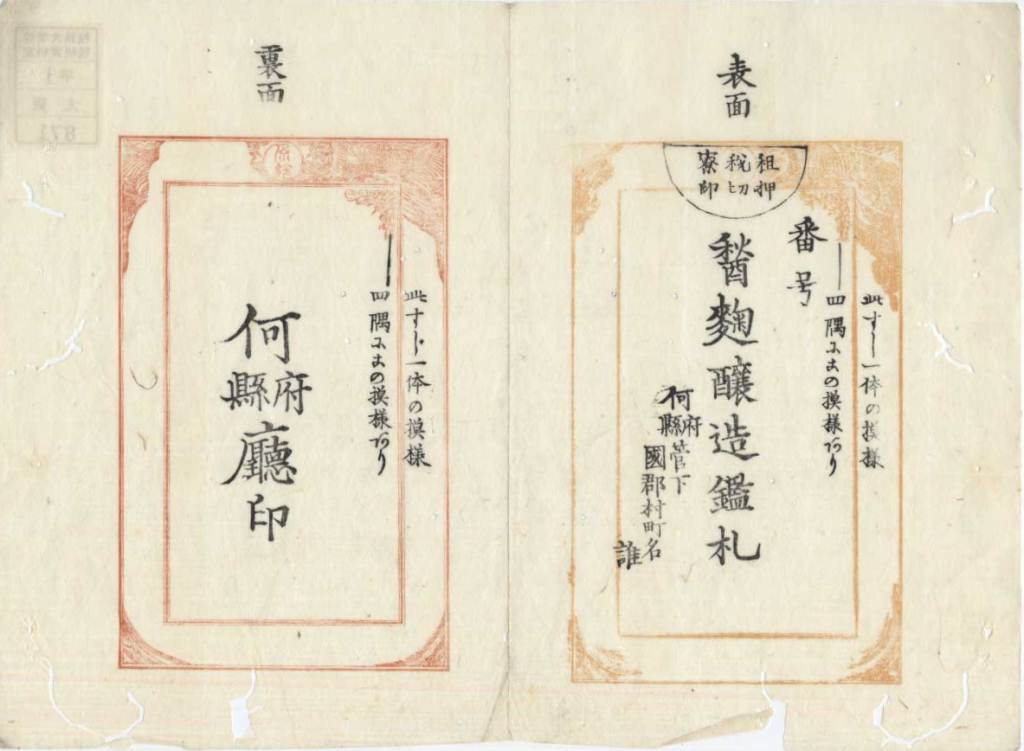 表面
租税寮
押切印
番号
𥡴麴醸造鑑札
何府縣管下
國郡村町名
誰
此すじ一体の摸様
四隅に此の摸様あり
裏面
何府縣廳印
此すじ一体の摸様
四隅に此の摸様あり